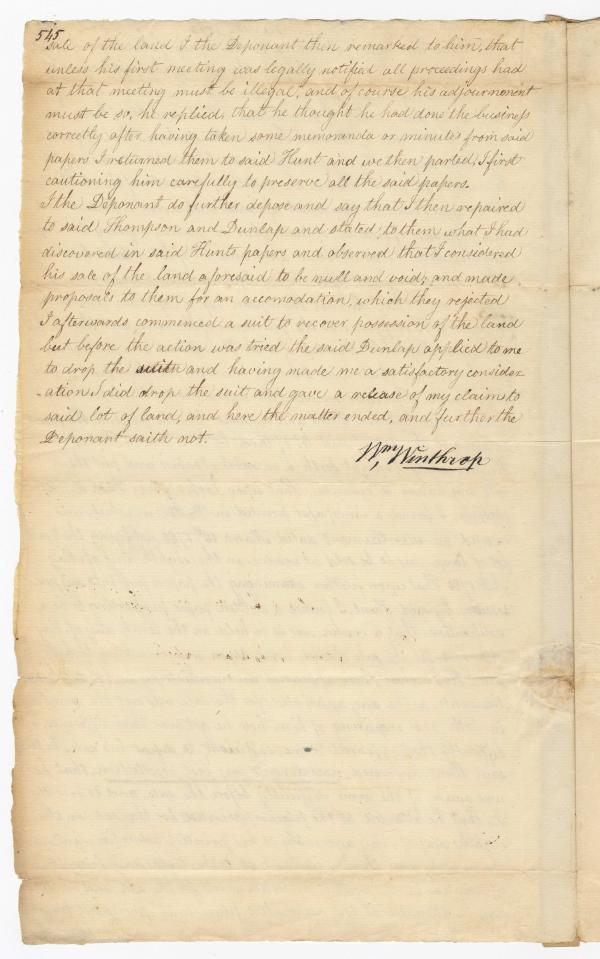 545
sale of the land I the Deponant then remarked to him, that
unless his first meeting was legally notified all proceedings had
at that meeting must be illegal, and of course his adjournment
must be so, he replied, that he thought he had done the business
correctly after having taken some memoranda or minutes from said
papers I returned them to said Hunt and we then parted, I first
cautioning him carefully to preserve all the said papers.
I the Deponant do further depose and say that I then repaired
to said Thompson and Dunlap and stated to them what I had
discovered in said Hunts papers and observed that I considered
his sale of the land aforesaid to be null and void; and made
proposals to them for an accomodation, which they rejected
I afterwards commenced a suit to recover possession of the land
but before the action was tried the said Dunlap applied to me
to drop the suit and having made me a satisfactory consider
-ation I did drop the suit and gave a release of my claim to
said lot of land, and here the matter ended, and further the
Deponant saith not.
Wm Winthrop